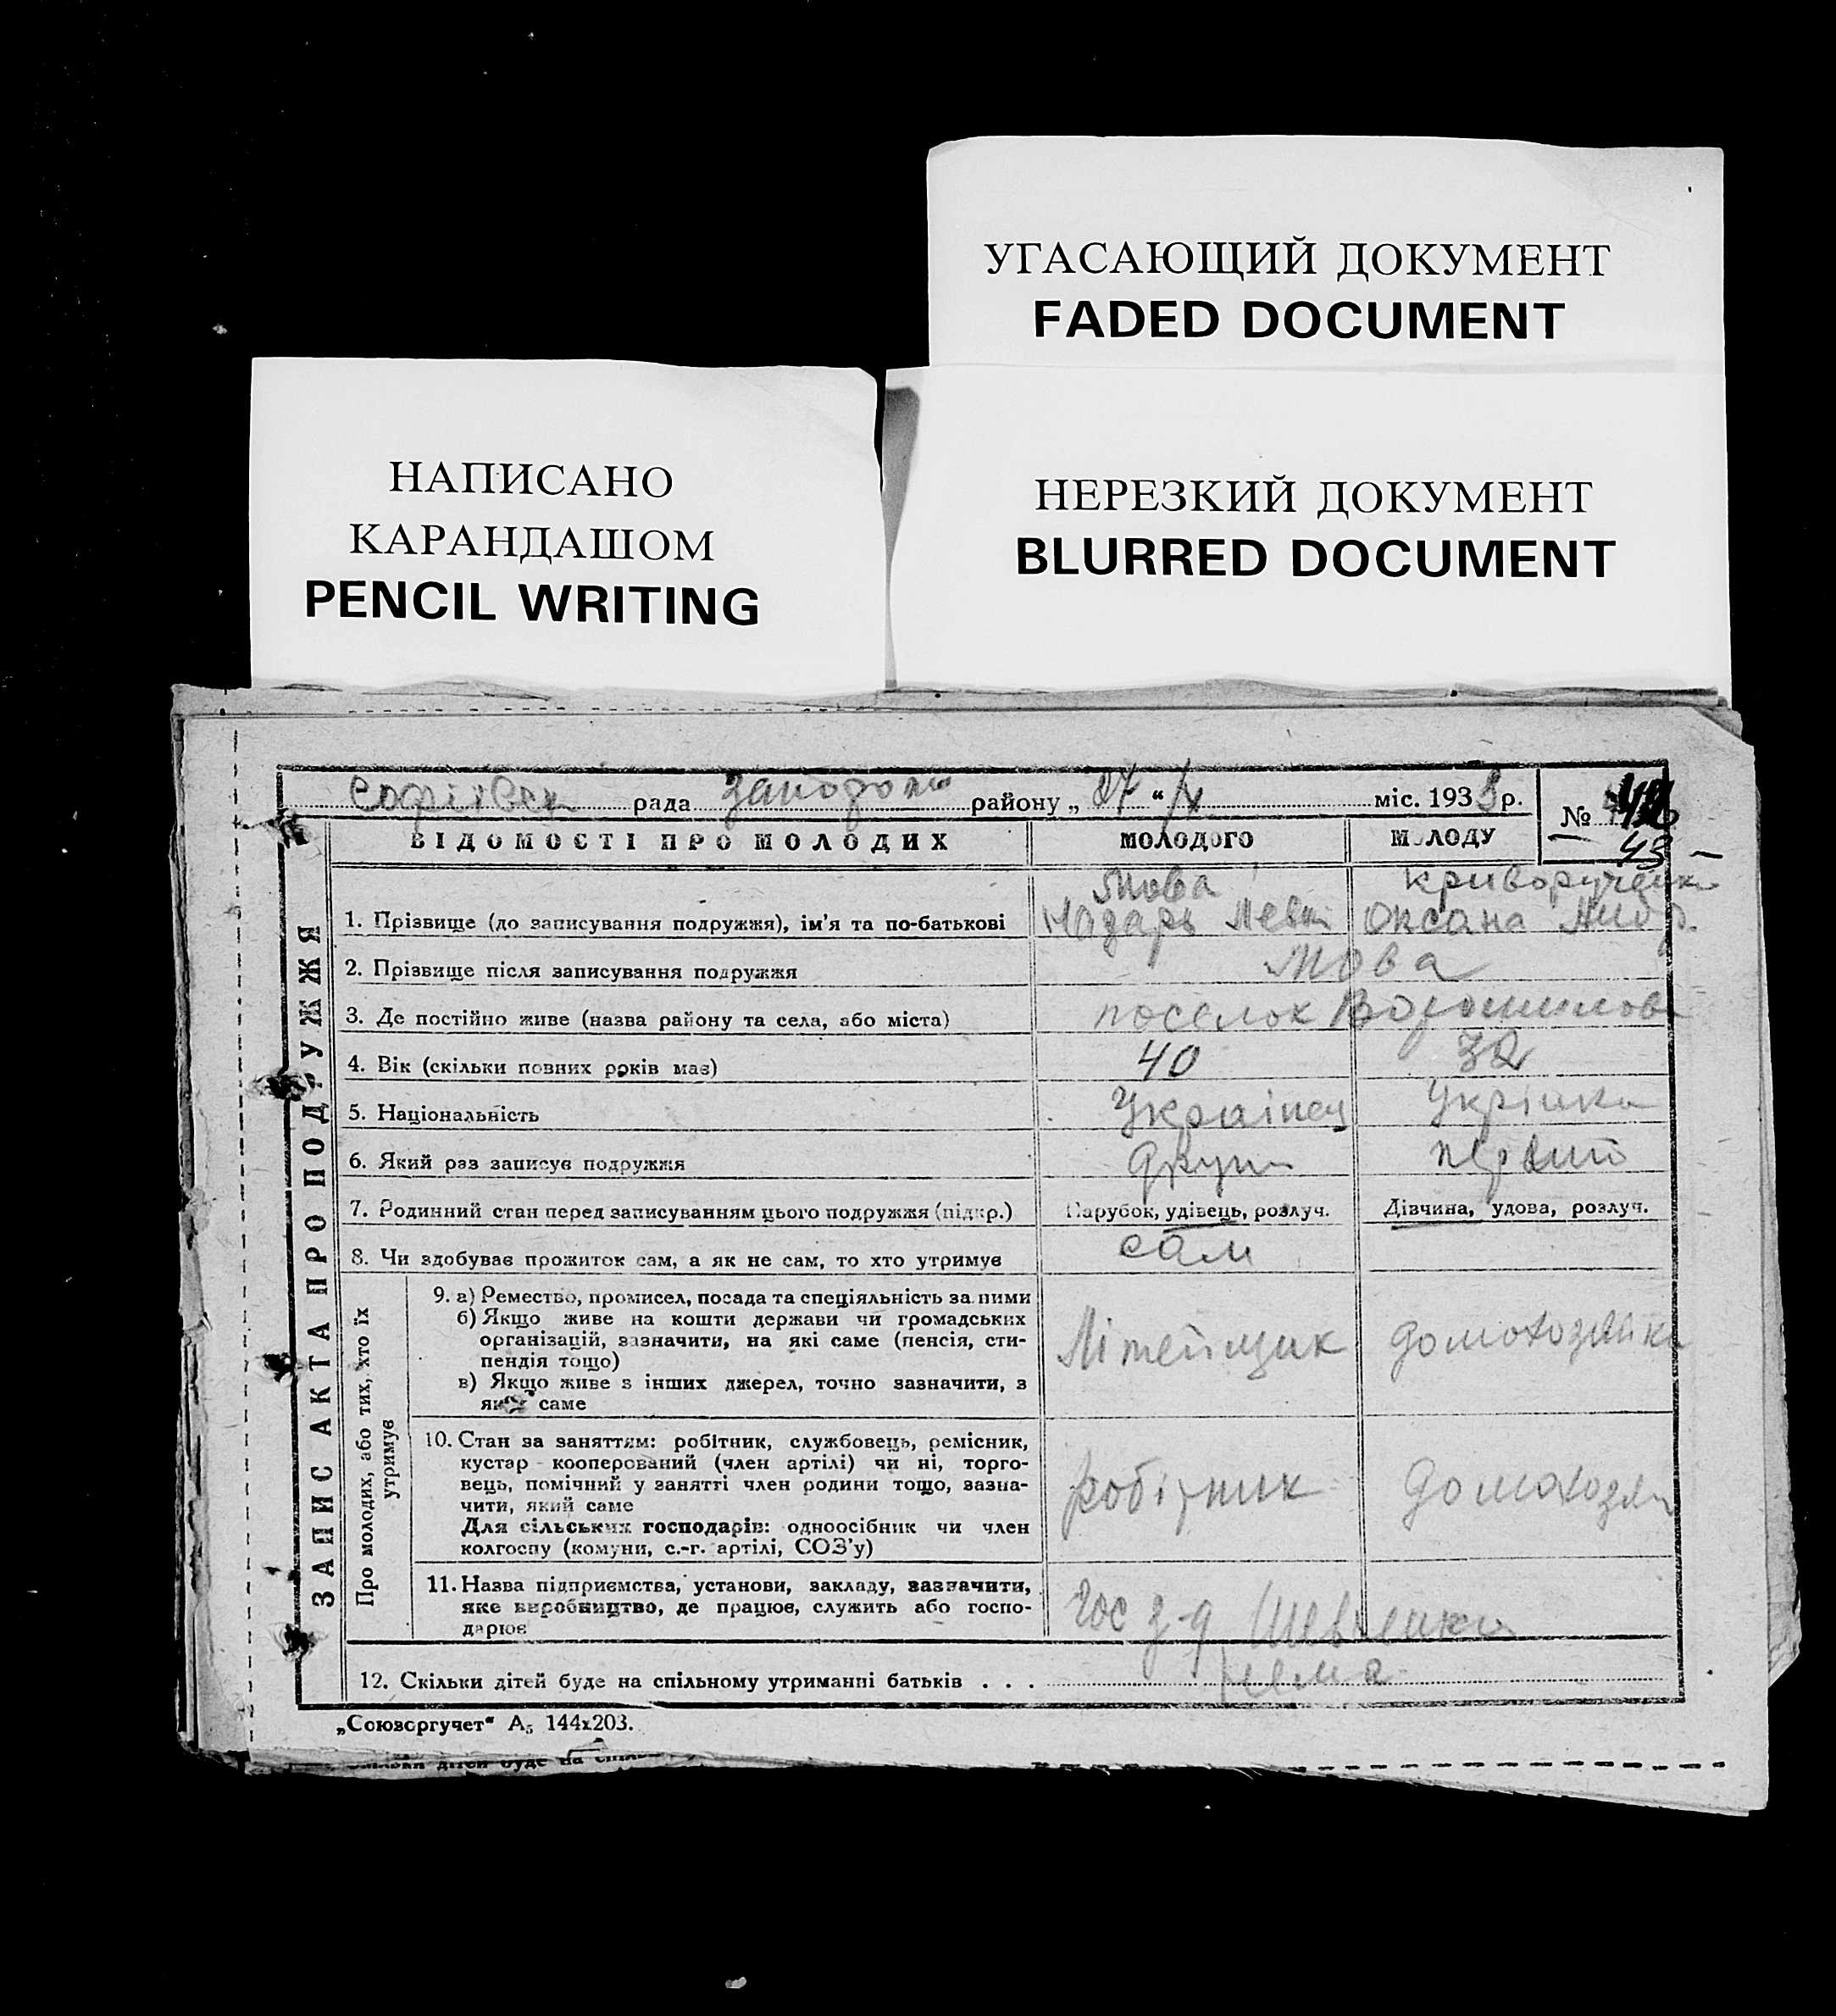 УГАСАЮЩИЙ ДОКУМЕНТ
FADED DOCUMENT
НАПИСАНО
КАРАНДАШОМ
PENCIL WRITING
НЕРЕЗКИЙ ДОКУМЕНТ
BLURRED DOCUMENT
рада району „ 27 “ міс. 1933 р.
№
43
ВІДОМОСТІ ПРО МОЛОДИХ МОЛОДОГО МОЛОДУ
ЗАПИС АКТА ПРО ПОДРУЖЖЯ
Мова
1. Прізвище (до записування подружжя), ім'я та по-батькові Назарь Оксана
2. Прізвище після записування подружжя Мова
3. Де постійно живе (назва району та села, або міста) поселок Ворошилова
4. Вік (скільки повних років має) 40 32
5. Національність Українец Укрінка
6. Який раз записує подружжя
7. Родинний стан перед записуванням цього подружжя (підкр.) Парубок, удівець, розлуч. Дівчина, удова, розлуч.
8. Чи здобуває прожиток сам, а як не сам, то хто утримує сам
Про молодих, або тих, хто їх
утримує
9. а) Ремество, промисел, посада та спеціяльність за ними
б) Якщо живе на кошти держави чи громадських
організацій, зазначити, на які саме (пенсія, сти-
пендія тощо)
в) Якщо живе з інших джерел, точно зазначити, з
яких саме
Літейщик домохозяйка
10. Стан за заняттям: робітник, службовець, ремісник,
кустар кооперований (член артілі) чи ні, торго-
вець, помічний у занятті член родини тощо, зазна-
чити, який саме
Для сільських господарів: одноосібник чи член
колгоспу (комуни, с.-г. артілі, СОЗ'у)
робітник домохозяй
11. Назва підприємства, установи, закладу, зазначити,
яке виробництво, де працює, служить або госпо-
дарює
Гос з-д Шевченка
12. Скільки дітей буде на спільному утриманні батьків . . . нема
„Союзоргучет“ А₅ 144х203.